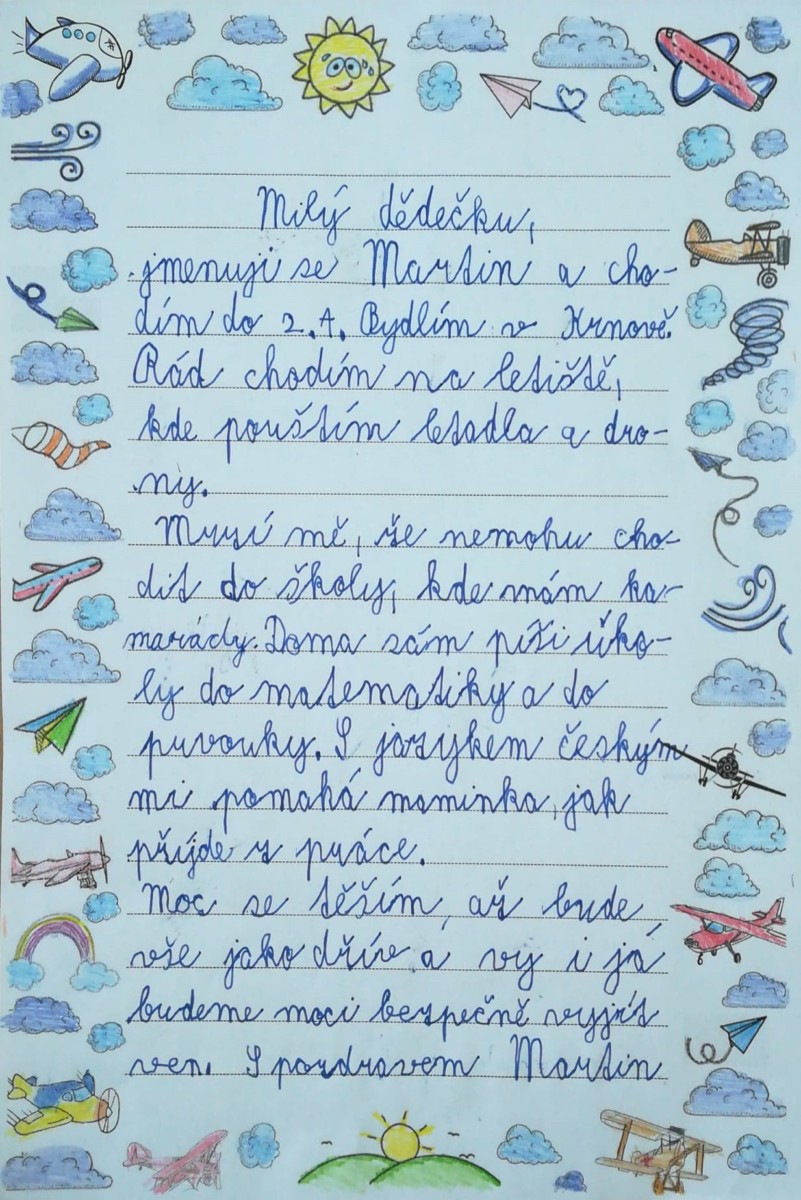 Milý dědečku,
jmenuji se Martin a cho-
dím do 2.A. Bydlím v Krnově.
Rád chodím na letiště,
kde pouštím letadla a dro-
ny.
Mrzí mě, že nemohu cho-
dit do školy, kde mám ka-
marády. Doma sám píši úko-
ly do matematiky a do
prvouky. S jazykem českým
mi pomahá maminka, jak
přijde z práce.
Moc se těším, až bude
vše jako dříve a vy i já
budeme moci bezpečně vyjít
ven. S pozdravem Martin